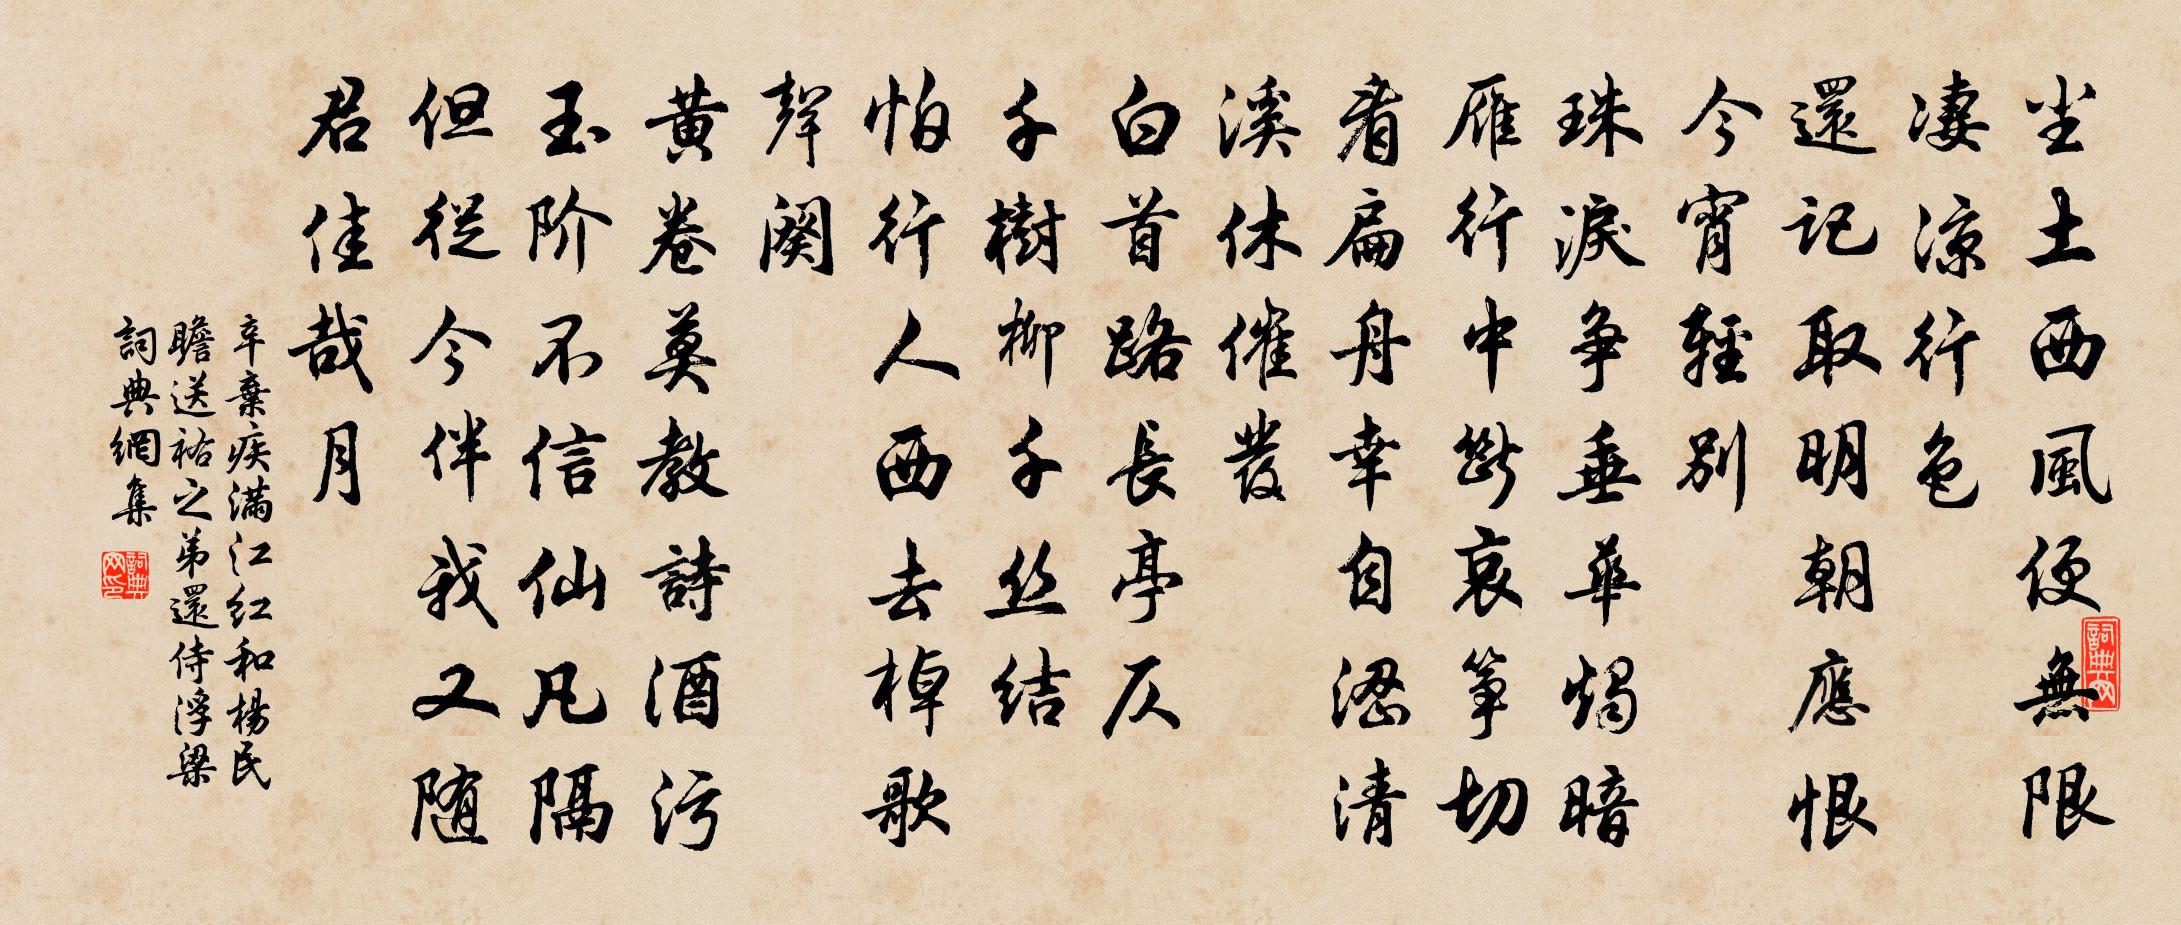 尘土西風便無限
凄涼行色
還記取明朝應恨
今宵輕別
珠淚争垂華燭暗
雁行中斷哀箏切
看扁舟幸自澀清
溪休催發
白首路長亭仄
千樹柳千丝结
怕行人西去棹歌
聲闋
黄卷莫教詩酒污
玉阶不信仙凡隔
但從今伴我又随
君佳哉月
辛棄疾满江红和楊民
瞻送祐之弟還侍浮梁
詞典網集
詞典网印
詞典网